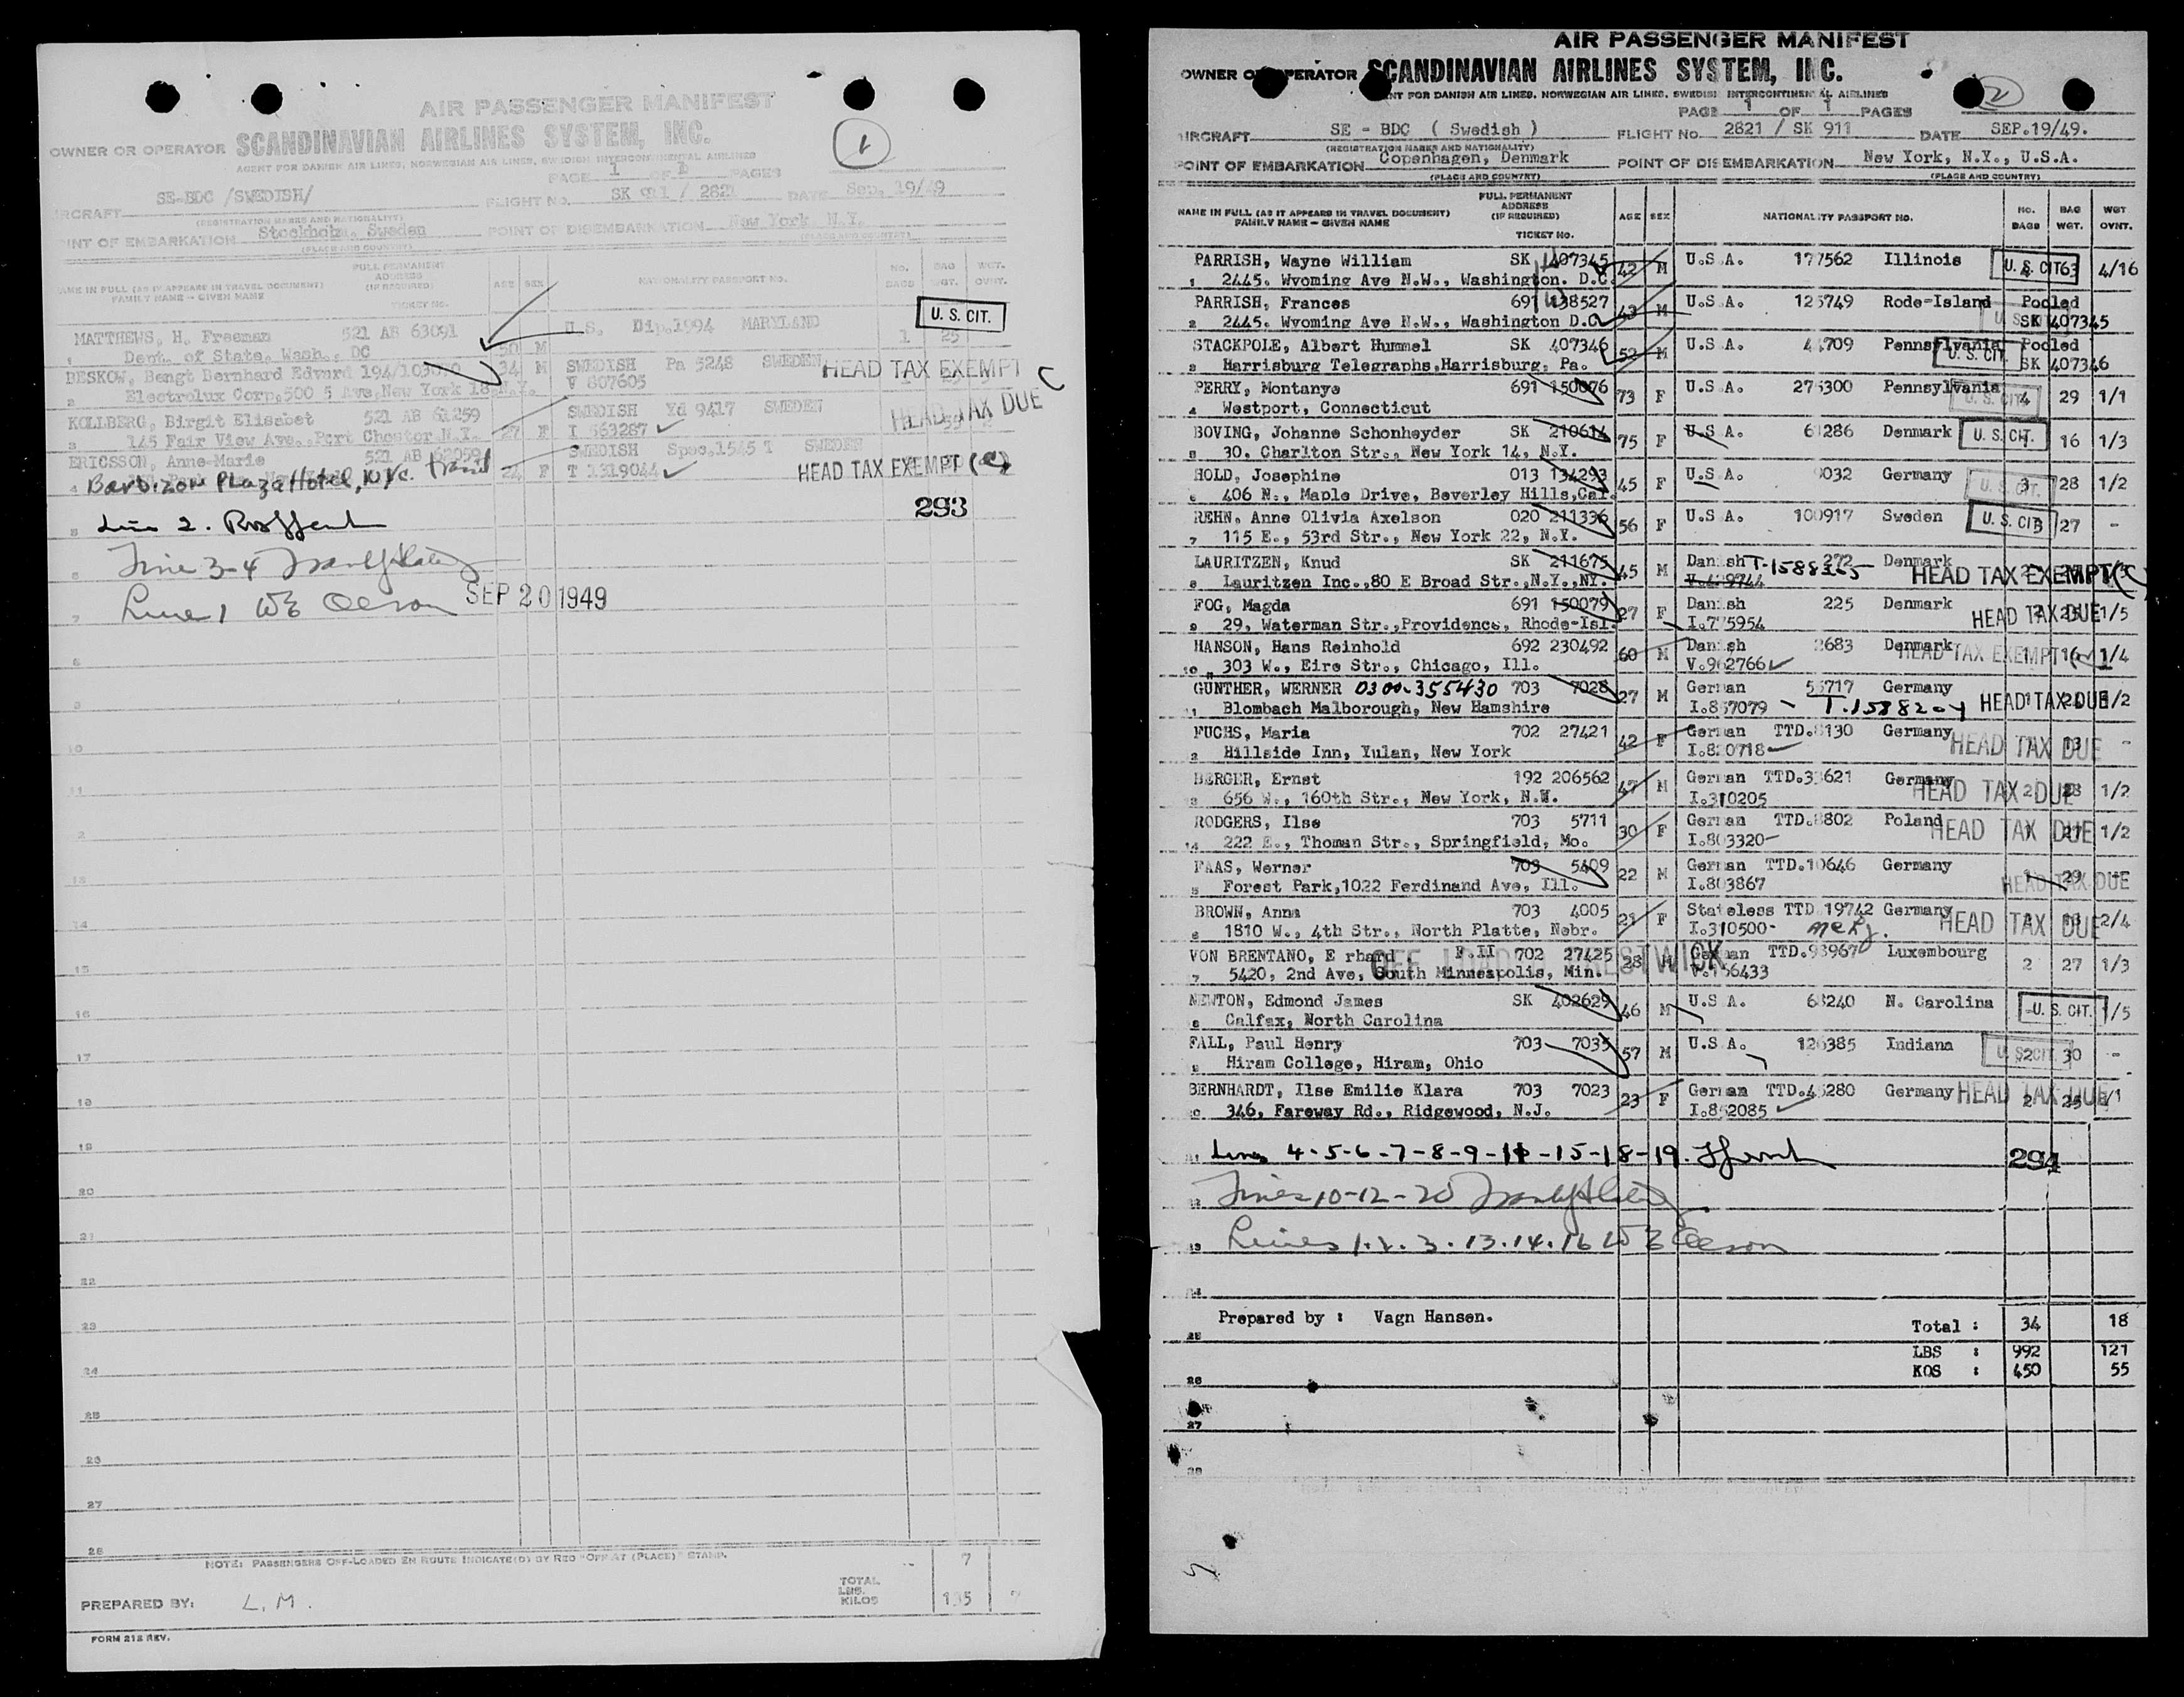 AIR PASSENGER MANIFEST
OWNER OR OPERATOR SCANDINAVIAN AIRLINES SYSTEM, INC.
AGENT FOR DANISH AIR LINES, NORWEGIAN AIR LINES, SWEDISH INTERCONTINENTAL AIRLINES
1
PAGE 1 OF PAGES
AIRCRAFT SE-BDC /SWEDISH/ FLIGHT NO. SK 911 / 2821 DATE Sep. 19/49
(REGISTRATION MARKS AND NATIONALITY)
POINT OF EMBARKATION Stockholm, Sweden POINT OF DISEMBARKATION New York N.Y.
(PLACE AND COUNTRY) (PLACE AND COUNTRY)
NAME IN FULL (AS IT APPEARS IN TRAVEL DOCUMENT) FAMILY NAME – GIVEN NAME FULL PERMANENT ADDRESS (IF REQUIRED) TICKET NO. AGE SEX NATIONALITY PASSPORT NO. NO. BAGS BAG WGT. WGT. OVNT.
MATTHEWS, H. Freeman 521 AB 63091 50 M U.S. Dip.1994 MARYLAND 1 25 U. S. CIT.
1 Dept. of State, Wash., DC
BESKOW, Bengt Bernhard Edvard 34 M SWEDISH Pa 5248 SWEDEN HEAD TAX EXEMPT C
2 Electrolux Corp,500 5 Ave,New York 18,N.Y. V 807605
KOLLBERG, Birgit Elisabet 521 AB 61259 27 F SWEDISH Yd 9417 SWEDEN HEAD TAX DUE
3 145 Fair View Ave.,Port Chester N.Y. I 563287
ERICSSON, Anne-Marie 521 AB 62059 24 F SWEDISH Spec.1545 T SWEDEN
4 Barbizon Plaza Hotel, NYC. T 1319044 HEAD TAX EXEMPT (C)
293
5 Line 2.
6 Line 3-4
7 Line 1 WE Oleson SEP 20 1949
NOTE: PASSENGERS OFF-LOADED EN ROUTE INDICATE(D) BY RED "OFF AT (PLACE)" STAMP.
7
TOTAL
LBS.
KILOS 135
PREPARED BY: L. M.
FORM 212 REV.
AIR PASSENGER MANIFEST
OWNER OR OPERATOR SCANDINAVIAN AIRLINES SYSTEM, INC.
AGENT FOR DANISH AIR LINES, NORWEGIAN AIR LINES, SWEDISH INTERCONTINENTAL AIRLINES
2
PAGE 1 OF 1 PAGES
AIRCRAFT SE - BDC ( Swedish ) FLIGHT No. 2821 / SK 911 DATE SEP.19/49.
(REGISTRATION MARKS AND NATIONALITY)
POINT OF EMBARKATION Copenhagen, Denmark POINT OF DISEMBARKATION New York, N.Y., U.S.A.
(PLACE AND COUNTRY) (PLACE AND COUNTRY)
NAME IN FULL (AS IT APPEARS IN TRAVEL DOCUMENT) FAMILY NAME – GIVEN NAME FULL PERMANENT ADDRESS (IF REQUIRED) TICKET NO. AGE SEX NATIONALITY PASSPORT NO. NO. BAGS BAG WGT. WGT OVNT.
PARRISH, Wayne William SK 407345 42 M U.S.A. 177562 Illinois U. S. CIT 63 4/16
1 2445. Wyoming Ave N.W., Washington. D.C.
PARRISH, Frances 691 138527 43 M U.S.A. 125749 Rode-Island Pooled
2 2445. Wyoming Ave N.W., Washington D.C. SK 407345
STACKPOLE, Albert Hummel SK 407346 52 M U.S.A. Pennsylvania Pooled
3 Harrisburg Telegraphs,Harrisburg, Pa. U. S. CIT. SK 407346
PERRY, Montanye 691 150076 73 F U.S.A. 275300 Pennsylvania 4 29 1/1
4 Westport, Connecticut U. S. CIT.
BOVING, Johanne Schonheyder SK 210614 75 F U.S.A. 61286 Denmark U. S. CIT. 16 1/3
5 30. Charlton Str., New York 14, N.Y.
HOLD, Josephine 013 134293 45 F U.S.A. 9032 Germany U. S. CIT. 3 28 1/2
6 406 N., Maple Drive, Beverley Hills,Cal.
REHN, Anne Olivia Axelson 020 211336 56 F U.S.A. 100917 Sweden U. S. CIT 3 27 -
7 115 E., 53rd Str., New York 22, N.Y.
LAURITZEN, Knud SK 211675 45 M Danish 272 Denmark HEAD TAX EXEMPT (C)
8 Lauritzen Inc.,80 E Broad Str.,N.Y.,NY.
FOG, Magda 691 150079 27 F Danish 225 Denmark HEAD TAX DUE 1/5
9 29, Waterman Str.,Providence, Rhode-Isl. I.775954
HANSON, Hans Reinhold 692 230492 60 M Danish 2683 Denmark HEAD TAX EXEMPT 1 16 1/4
10 303 W., Eire Str., Chicago, Ill. V.962766
GUNTHER, WERNER 0300-355430 703 7028 27 M German 55717 Germany HEAD TAX DUE /2
11 Blombach Malborough, New Hamshire I.857079 - T.1588204
FUCHS, Maria 702 27421 42 F German TTD.8130 Germany HEAD TAX DUE 13 -
2 Hillside Inn, Yulan, New York I.820718
BERGER, Ernst 192 206562 47 M German TTD.33621 Germany HEAD TAX DUE 2 1/2
3 656 W., 160th Str., New York, N.W. I.310205
RODGERS, Ilse 703 5711 30 F German TTD.8802 Poland HEAD TAX DUE 27 1/2
14 222 E., Thoman Str., Springfield, Mo. I.803320-
FAAS, Werner 703 5409 22 M German TTD.10646 Germany 29
5 Forest Park,1022 Ferdinand Ave, Ill. I.803867 HEAD TAX DUE
BROWN, Anna 703 4005 21 F Stateless TTD 19742 Germany HEAD TAX DUE 2/4
6 1810 W., 4th Str., North Platte, Nebr. I.310500-
VON BRENTANO, E rhard F.II 702 27425 28 M German TTD.93967 Luxembourg 2 27 1/3
7 5420, 2nd Ave, South Minneapolis, Min. V.156433
OFF LOADED PRESTWICK
NEWTON, Edmond James SK 402629 46 M U.S.A. 63240 N. Carolina U. S. CIT. 1/5
8 Calfax, North Carolina
FALL, Paul Henry 703 7035 57 M U.S.A. 126385 Indiana U. S. CIT. 2 30 -
9 Hiram College, Hiram, Ohio
BERNHARDT, Ilse Emilie Klara 703 7023 23 F German TTD.45280 Germany HEAD TAX DUE 2 25 /1
20 346, Fareway Rd., Ridgewood, N.J. I.852085
Lines 4-5-6-7-8-9-11-15-18-19. 294
Lines 10-12-20
Lines 1.2.3.13.14.16 WE Oleson
Prepared by : Vagn Hansen.
Total : 34 18
LBS : 992 121
KGS : 450 55